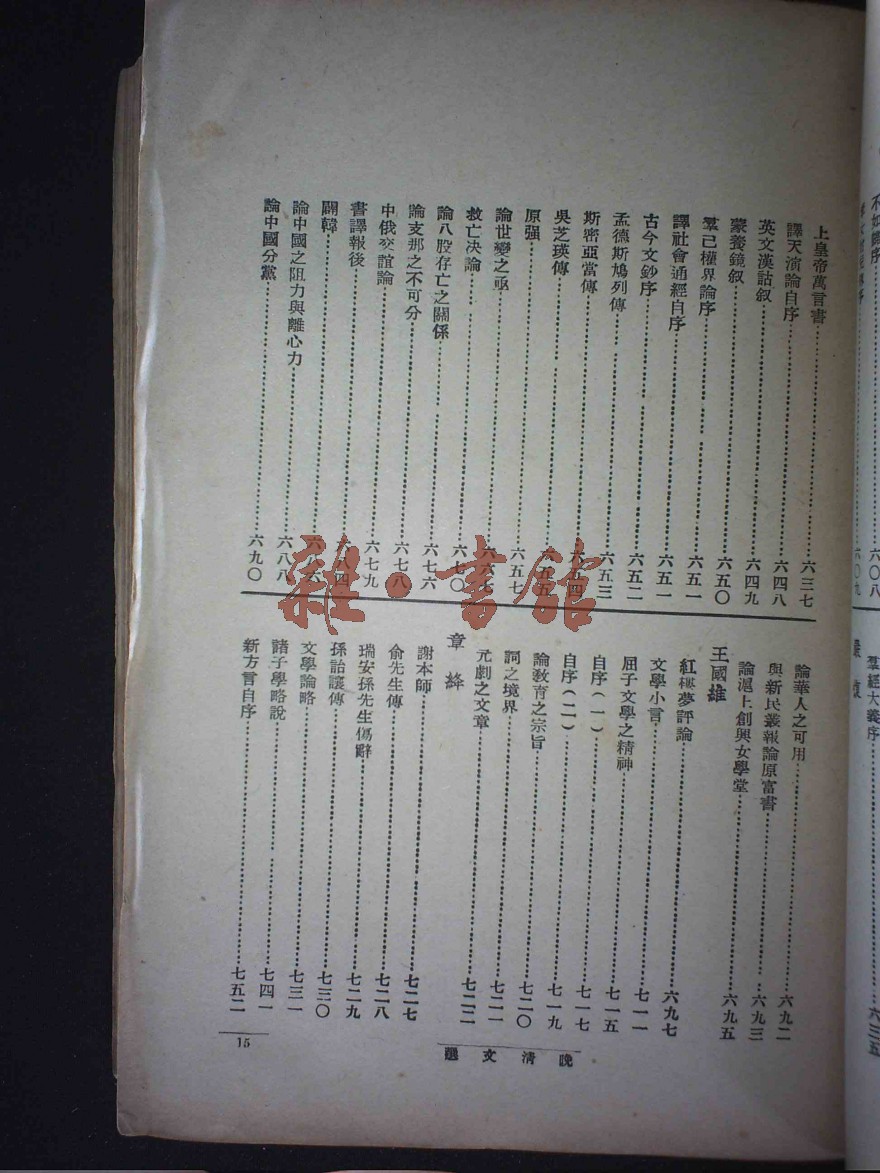 不如歸序……六〇八
六〇九
嚴復
羣經大義序……六三五
上皇帝萬言書……六三七
譯天演論自序……六四八
英文漢詁叙……六四九
蒙養鏡叙……六五〇
羣己權界論序……六五一
譯社會通經自序……六五一
古今文鈔序……六五二
孟德斯鳩列傳……六五三
斯密亞當傳……六五四
吳芝瑛傳……六五五
原强……六五七
論世變之亟……六六七
救亡决論……六七〇
論八股存亡之關係……六七六
論支那之不可分……六七八
中俄交誼論……六七九
書譯報後……六八四
闢韓……六八六
論中國之阻力與離心力……六八八
論中國分黨……六九〇
論華人之可用……六九二
與新民叢報論原富書……六九三
論滬上創興女學堂……六九五
王國維
紅樓夢評論……六九七
文學小言……七一一
屈子文學之精神……七一五
自序(一)……七一七
自序(二)……七一九
論敎育之宗旨……七二〇
詞之境界……七二一
元劇之文章……七二二
章絳
謝本師……七二七
俞先生傳……七二八
瑞安孫先生傷辭……七二九
孫詒讓傳……七三〇
文學論略……七三一
諸子學略說……七四一
新方言自序……七五二
晚清文選
15
雜·書館